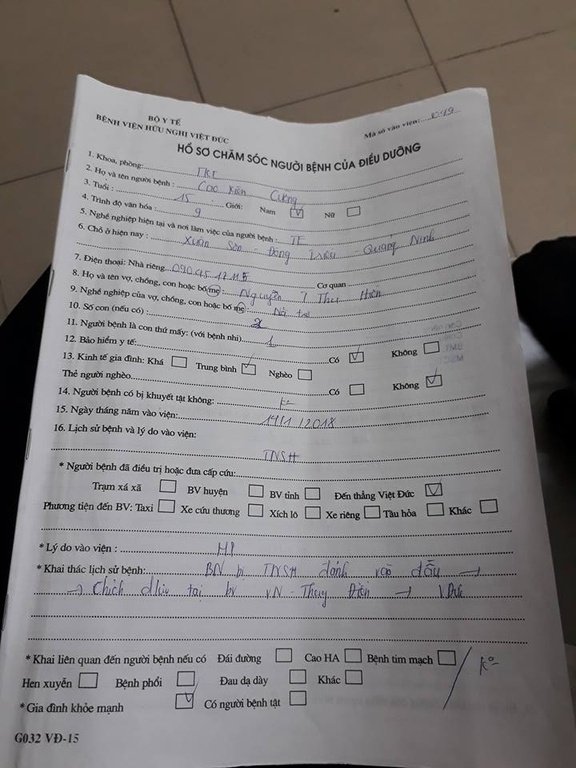 BỘ Y TẾ
BỆNH VIỆN HỮU NGHỊ VIỆT ĐỨC
Mã số vào viện:
HỒ SƠ CHĂM SÓC NGƯỜI BỆNH CỦA ĐIỀU DƯỠNG
1. Khoa, phòng:
2. Họ và tên người bệnh : Cao Xuân Cường
3. Tuổi : 15 Giới: Nam Nữ
4. Trình độ văn hóa : 9
5. Nghề nghiệp hiện tại và nơi làm việc của người bệnh : TE
6. Chỗ ở hiện nay : Xuân Sơn - Đông Triều Quảng Ninh
7. Điện thoại: Nhà riêng Cơ quan
8. Họ và tên vợ, chồng, con hoặc bố mẹ : Nguyễn T Thu Hiền
9. Nghề nghiệp của vợ, chồng, con hoặc bố mẹ : Nội trợ
10. Số con (nếu có) : 2
11. Người bệnh là con thứ mấy: (với bệnh nhi) 1
12. Bảo hiểm y tế: Có Không
13. Kinh tế gia đình: Khá Trung bình Nghèo
Thẻ người nghèo Có Không
14. Người bệnh có bị khuyết tật không:
15. Ngày tháng năm vào viện: 14/1/2018
16. Lịch sử bệnh và lý do vào viện:
TNSH
* Người bệnh đã điều trị hoặc đưa cấp cứu:
Trạm xá xã BV huyện BV tỉnh Đến thẳng Việt Đức
Phương tiện đến BV: Taxi Xe cứu thương Xích lô Xe riêng Tàu hỏa Khác
* Lý do vào viện :
* Khai thác lịch sử bệnh: BN bị TNSH đánh vào đầu →
→ tại bv VN - Thụy Điển → V Đức
* Khai liên quan đến người bệnh nếu có Đái đường Cao HA Bệnh tim mạch
Hen xuyễn Bệnh phổi Đau dạ dày Khác
* Gia đình khỏe mạnh Có người bệnh tật
G032 VĐ-15